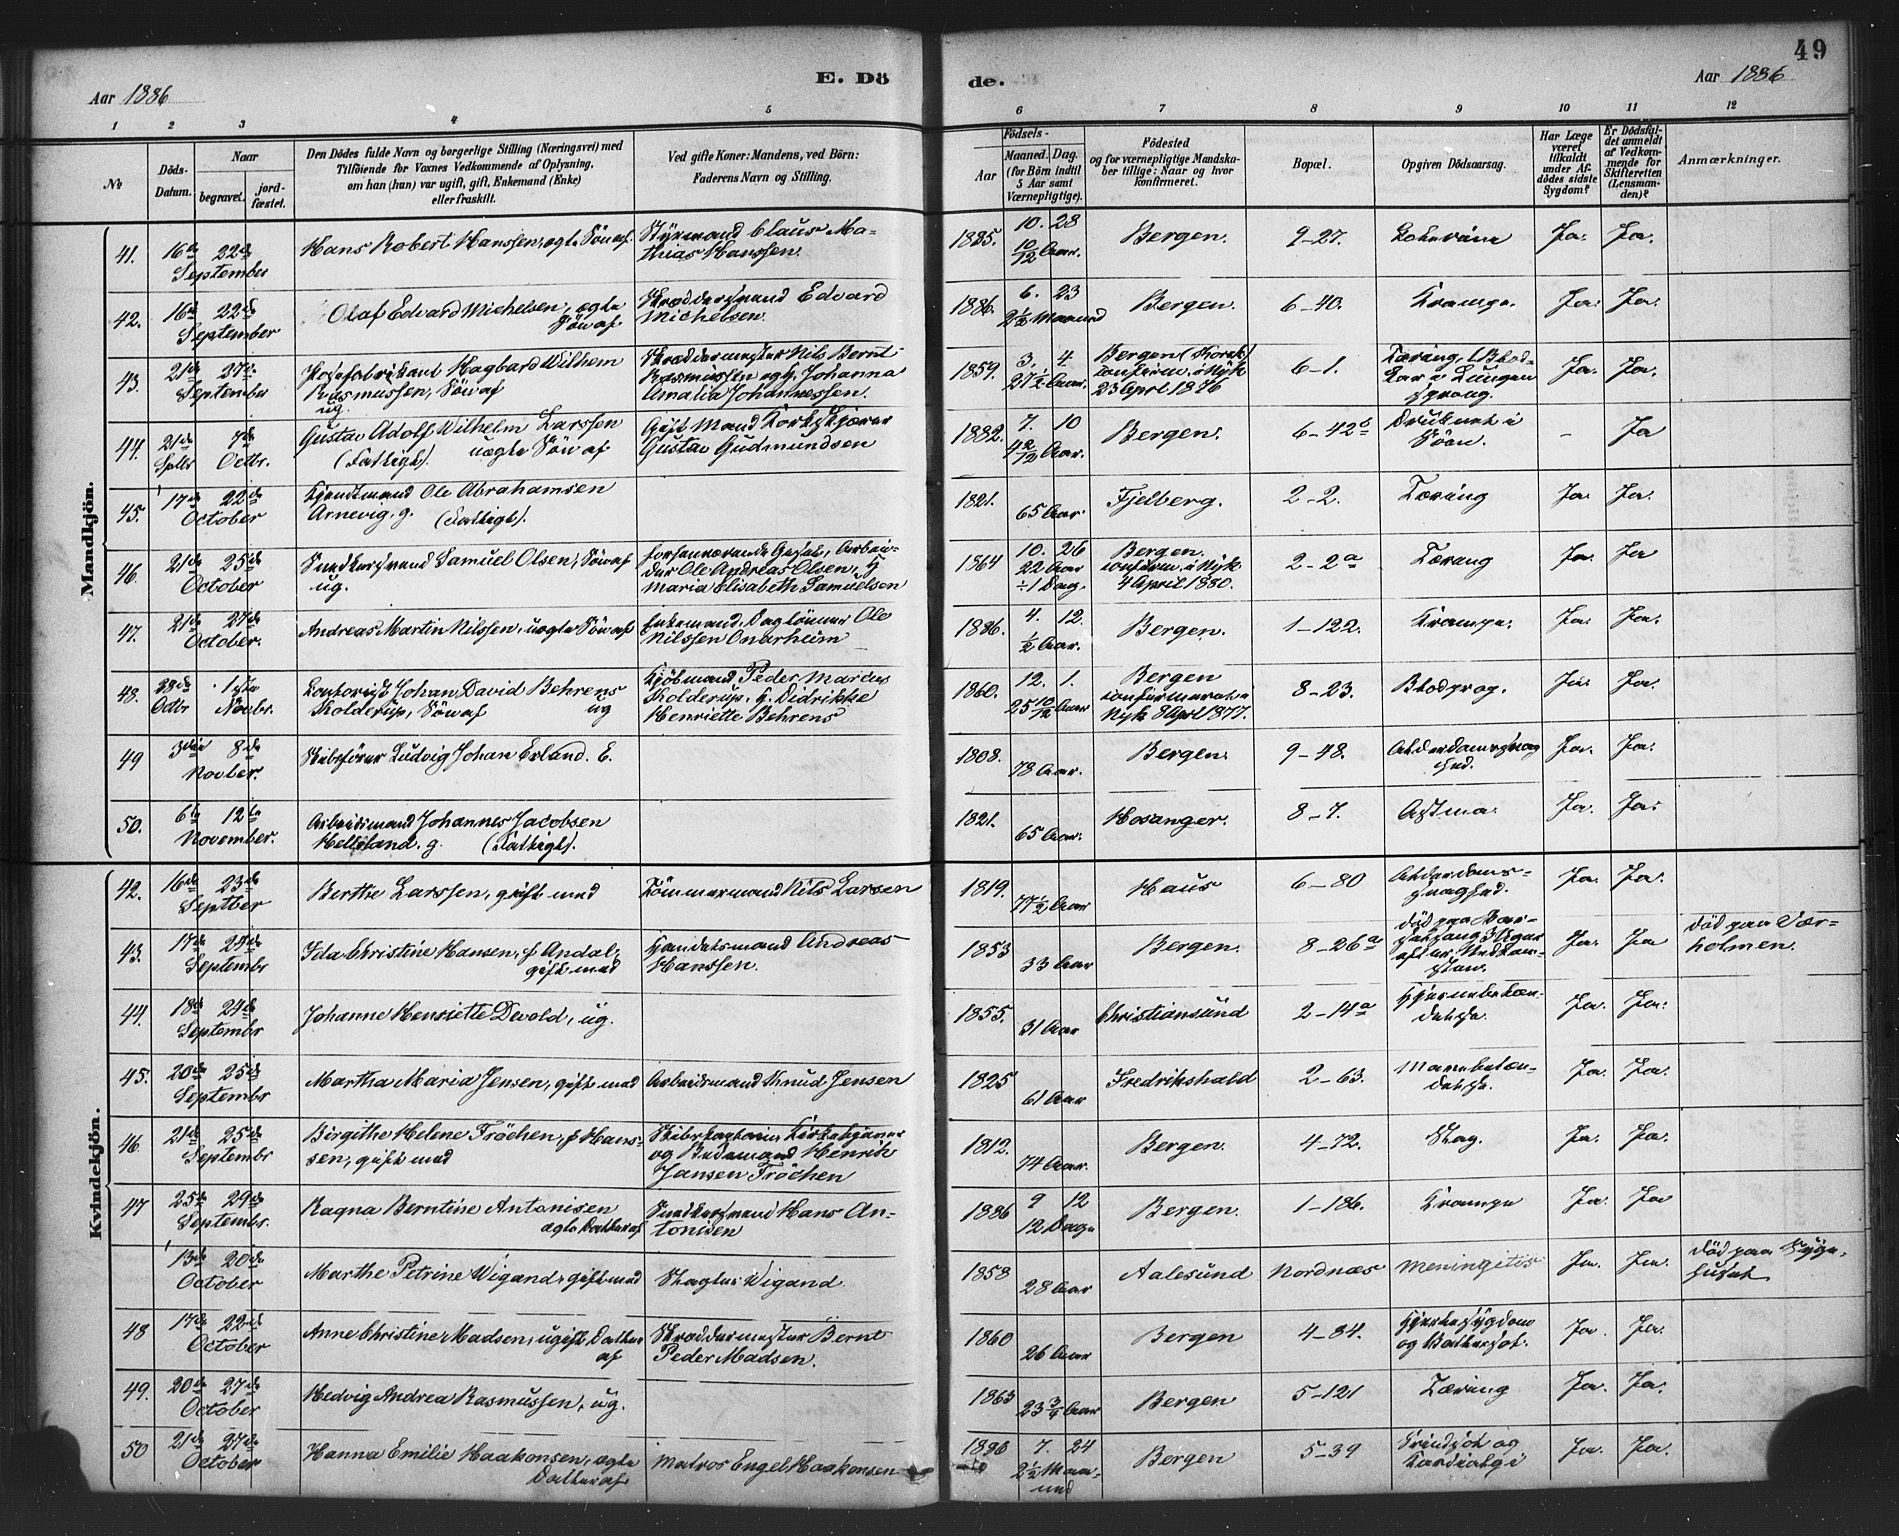 49
E. Döde.
Aar 1886
Aar 1886
1 2 3 4 5 6 7 8 9 10 11 12
No
Döds-Datum.
Naar
begravet.
jord-fæstet.
Den Dödes fulde Navn og borgerlige Stilling (Næringsvei) med
Tilföiende for Voxnes Vedkommende af Oplysning,
om han (hun) var ugift, gift, Enkemand (Enke)
eller fraskilt.
Ved gifte Koner: Mandens, ved Börn:
Faderens Navn og Stilling.
Födsels-
Aar
Maaned. Dag.
(for Börn indtil
5 Aar samt
Værnepligtige).
Födested
og for værnepligtige Mandska-
ber tillige: Naar og hvor
konfirmeret.
Bopæl.
Opgiven Dödsaarsag.
Har Læge
været
tilkaldt
under Af-
dödes sidste
Sygdom?
Er Dödsfal-
det anmeldt
af Vedkom-
mende for
Skifteretten
(Lensman-
den)?
Anmærkninger.
Mandkjön.
41. 16de September 22de Hans Robert Hanssen, ægte Sön af Styrmand Claus Ma-
thias Hanssen. 1885. 10. 28 10/12 Aar. Bergen. 9-27. Ja. Ja.
42. 16de September 22de Olaf Edvard Michelsen, ægte
Sön af Skræddersvend Edvard
Michelsen. 1886. 6. 23 2½ Maaned Bergen. 6-40. Krampe. Ja. Ja.
43. 21de September 27de Hagbard Wilhem
Rasmussen, Sön af
ug. Skræddermester Nils Bernt
Rasmussen og h. Johanna
Amalia Johannessen. 1859. 3. 4 27½ Aar. Bergen (Korsk)
confirm. i Nyk
23 April 1876 6-1. Tæring, Ja. Ja.
44. 21de Septbr 7de Octbr. Gustav Adolf Wilhelm Larssen
(Fattigt). uægte Sön af Gift Mand Korkskjærer
Gustav Gudmundsen 1882. 7. 10 4 2/12 Aar. Bergen. 6-42 Druknet i
Söen. - Ja
45. 17de October 22de Ole Abrahamsen
Arnevig. g. (Fattigt). 1821. 65 Aar. Fjelberg. 2-2. Tæring Ja. Ja.
46. 21de October 25de Samuel Olsen, Sön af
ug. forhenværende Arbei-
der Ole Andreas Olsen, &
Maria Elisabeth Samuelsen 1864 10. 26 22 Aar
÷1 Dag. Bergen.
confirm. i Nyk.
4 April 1880. 2-2a Tæring Ja. Ja
47. 21de October. 27de Andreas Martin Nilssen, uægte Sön af Enkemand, Daglönner Ole
Nilssen Onarheim 1886. 4. 12. ½ Aar. Bergen. 1-122. Krampe. Ja. Ja.
48. 28de Octbr 1ste Novbr. Contorist Johan David Behrens
Kolderup, Sön af ug Kjöbmand Peder Marcus
Kolderup, & Didrikke
Henriette Behrens 1860. 12. 1. 25 10/12 Aar Bergen
confirmeret i
Nyk 8 April 1877. 8-23. Blodprop. Ja. Ja.
49 3die Novber. 8de Skibsförer Ludvig Johan Erland. E. 1808. 78 Aar. Bergen. 9-48. Alderdomssvag
hed. Ja. Ja.
50. 6te November. 12te Arbeidsmand Johannes Jacobsen
Helleland. g. (Fattigt). 1821. 65 Aar. Hosanger. 8-7. Astma. Ja. Ja.
Kvindekjön.
42. 16de Septber 23de Berthe Larssen, gift med Tömmermand Nils Larsen 1819. Aar Haus 6-80 Alderdoms-
svaghed. Ja. Ja.
43. 17de Septembr 24de Ida Christine Hansen, f. Andal,
gift med Handelsmand Andreas
Hanssen. 1853 33 Aar Bergen. 8-26a död paa Bar-
selseng 3 Uger
efter Nedkom-
sten. Ja. Ja död paa Vær-
holmen.
44. 18de Septembr 24de Johanne Henriette Devold, ug. 1855. 31 Aar Christiansund 2-14a Hjernebetæn-
delse. Ja. Ja.
45. 20de Septembr 25de Martha Maria Jensen, gift med Arbeidsmand Knud Jensen 1825 61 Aar Fredrikshald 2-63. Mavebetæn-
delse. Ja. Ja.
46. 21de Septembr 25de Birgithe Helene Fröchen, f Hans-
sen, gift med Kirketjener
og Bedemand Henrik
Jansen Fröchen 1812. 74 Aar. Bergen. 4-72. Slag. Ja. Ja.
47 25de Septembr. 29de Ragna Berntine Antonisen
ægte Datter af Hans An-
tonisen 1886 9 12 12 Dage Bergen. 1-186. Krampe Ja. Ja
13de October 20de Marthe Petrine Wigand, gift med Slagter Wigand. 1858 28 Aar Aalesund Nordnæs Meningitis Ja. Ja. död paa Syge-
huset
48 17de October 22de Anne Christine Madsen, ugift Datter
af Skræddermester Bernt
Peder Madsen. 1860 26 Aar Bergen 4-84. Hjertesygdom
og Vattersot. Ja. Ja.
49. 20de October 27de Hedvig Andrea Rasmussen, ug. 1863 23¾ Aar Bergen 5-121 Tæring Ja. Ja.
50 21de October 27de Hanna Emilie Haakonsen, ægte
Datter af Matros Engel Haakonsen 1886 7. 24 2½ Maa-
ned Bergen 5-39 Ja. Ja.